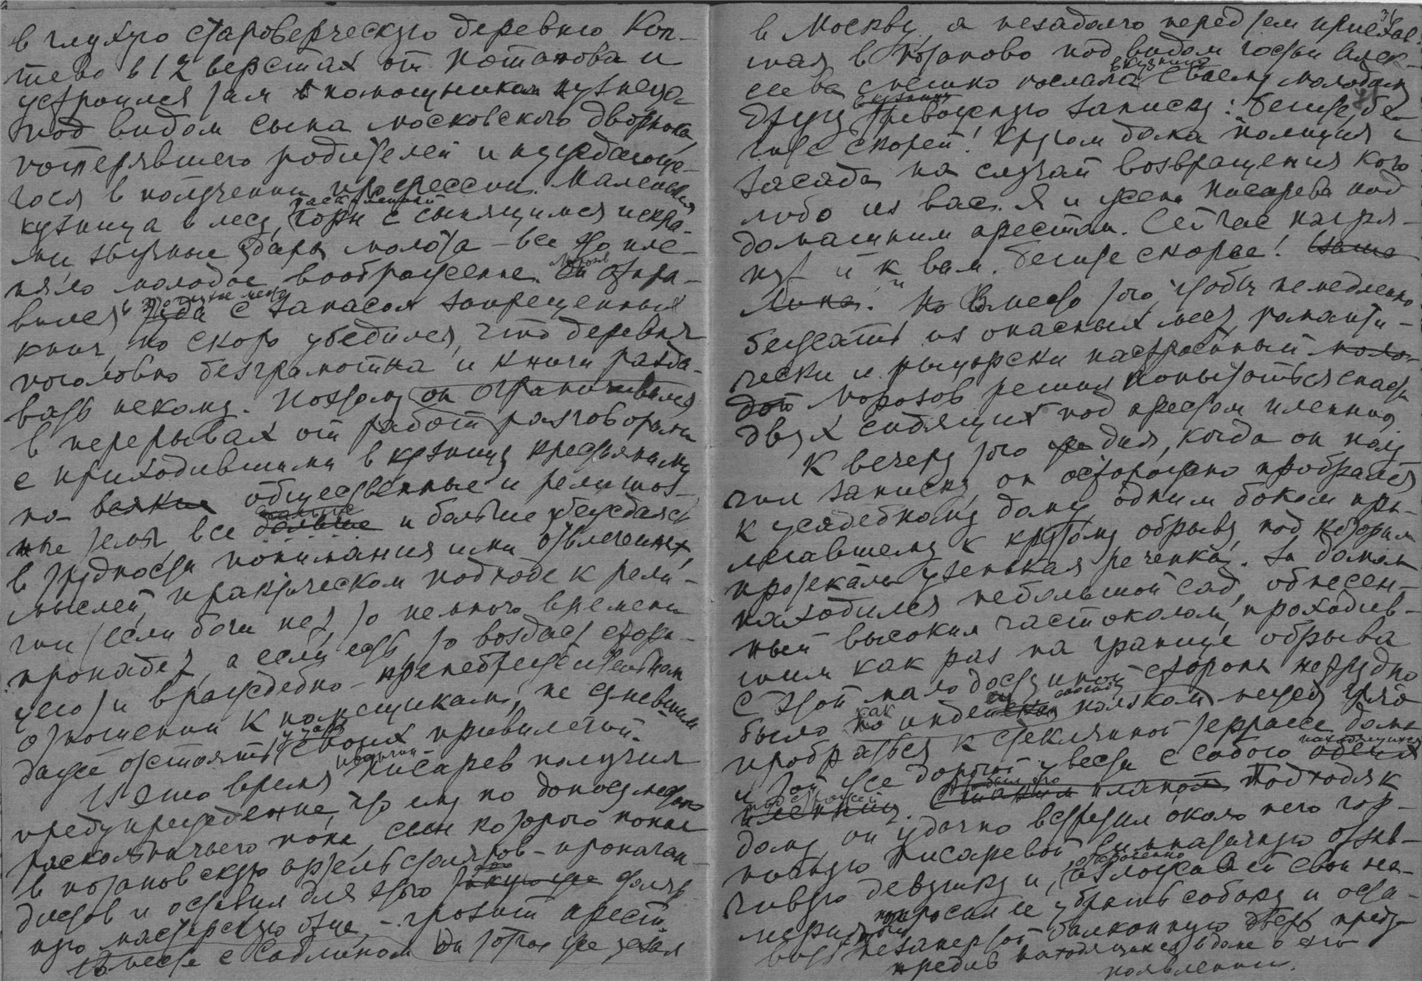 в глухую староверческую деревню Коп-
тево в 12 верстах от Потапова и
устроился там помощником кузнеца
под видом сына московского дворника,
потерявшего родителей и нуждающе-
гося в получении профессии. Маленькая
кузница в лесу, горн с сыплящимися искра-
ми звучные удары молота – все это пле-
няло молодое воображение. Он отпра-
вился туда с запасом запрещенных
книг, но скоро убедился, что деревня
поголовно безграмотна и книги разда-
вать некому. Поэтому он ограничивался
в перерывах от работ разговорами
с приходившими в кузницу крестьянами
на всякие общественные и религиоз-
ные темы все больше и больше убеждаясь
в трудности понимания ими отвлеченных
мыслей, практическом подходе к рели-
гии (если бога нет то немного времени
пропадет, а если есть, то воздаст стори-
цею) и враждебно-пренебрежительном
отношении к помещикам, не сумевшим
даже отстоять своих привилегий.
В это время Писарев получил
предупреждение, что ему по доносу
раскольничьего попа сын которого попал
в потаповскую артель столяров – пропаган-
дистов и оставил для этого
мастерскую отца, – грозит арест.
Вместе с Саблиным он тотчас же уехал
в Москву, а незадолго перед тем приехав-
шая в Потапово под видом гостьи Алек-
сеева спешно послала своему молодому
другу тревожную записку: "Бегите, бе-
гите скорей! Кругом дома полиция и
засада на случай возвращения кого
либо из вас. Я и жена Писарева под
домашним арестом. Сейчас нагря-
нут и к вам. Бегите скорее!
Но вместо того, чтобы немедленно
бежать из опасных мест, романти-
чески и рыцарски настроенный моло-
дой Морозов решил попытаться спасти
двух сидящих под арестом пленниц.
К вечеру того дня, когда он полу-
чил записку, он осторожно пробрался
к усадебному дому одним боком при-
легавшему к крутому обрыву, под которым
протекала узенькая реченка. За домом
находился небольшой сад, обнесен-
ный высоким частоколом, проходив-
шим как раз на границе обрыва
С этой малодоступной стороны нетрудно
было ползком через
пробраться к стеклянной террасе дома
и той же дорогой увести с собою обеих
пленниц. Подходя к
дому он удачно встретил около него гор-
ничную Писаревой отзыв-
чивую девушку и, изложив ей свои на-
мерения попросил ее убрать собаку и оста-
вить незапертой балконную дверь преду-
предив находящихся в доме о его
появлении.